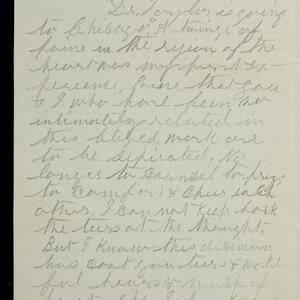 Dr. Taylor is going
to Chicago "A twinge of
pain in the region of the
heart was my first ex-
perience, pain that you
& I who have been so
intimately related in
this blessed work are
to be seperated, No
longer to counsel to pray
to comfort & cheer each
other. I can not keep back
the tears at the thought,
But I know this decision
has cost you tears & wake
ful hours & much of